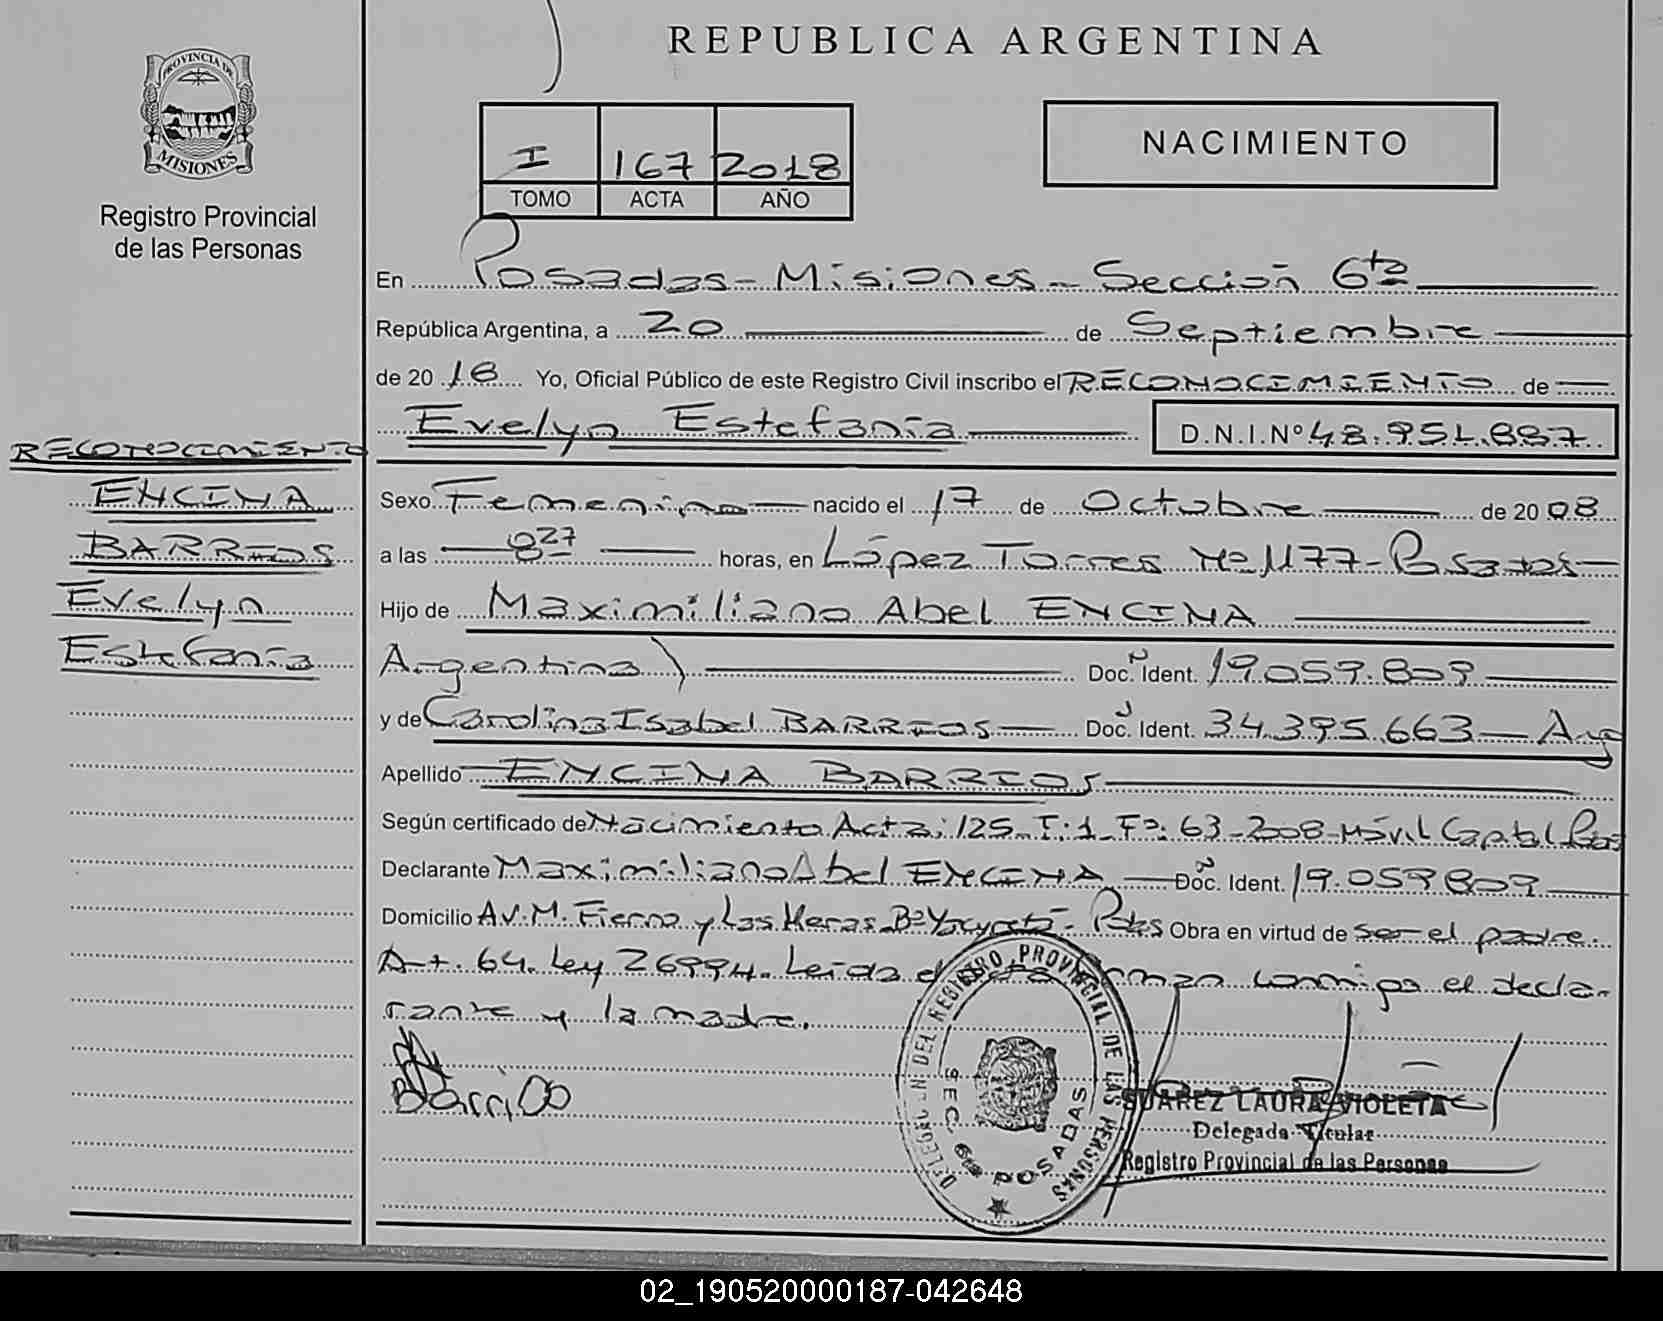 REPUBLICA ARGENTINA
PROVINCIA DE
MISIONES
Registro Provincial
de las Personas
I 167 2018
TOMO ACTA AÑO
NACIMIENTO
En Posadas - Misiones - Sección 6ta
República Argentina, a 20 de Septiembre
de 2018 Yo, Oficial Público de este Registro Civil inscribo el RECONOCIMIENTO de
Evelyn Estefanía D.N.I.Nº 48.951.887
RECONOCIMIENTO
ENCINA
BARRIOS
Evelyn
Estefanía
Sexo Femenino nacido el 17 de Octubre de 2008
a las 8 27 horas, en López Torres Nº 1177 - Posadas
Hijo de Maximiliano Abel ENCINA
Argentina) Doc. Ident. 19.059.809
y de Carolina Isabel BARRIOS Doc. Ident. 34.395.663 - Arg
Apellido ENCINA BARRIOS
Según certificado de Nacimiento Acta: 125 - T: 1 - Fº: 63 - 2008 - Móvil Capital Pdas
Declarante Maximiliano Abel ENCINA Doc. Ident. 19.059.809
Domicilio AV. M. Fierro y Las Heras Bº Yacyretá - Pdas Obra en virtud de ser el padre.
Art. 64. Ley 26994. Leída el acta firman conmigo el decla-
rante y la madre.
Barrios
DELEGACION DEL REGISTRO PROVINCIAL DE LAS PERSONAS
SEC. 6ta POSADAS
SUAREZ LAURA VIOLETA
Delegada Titular
Registro Provincial de las Personas
02_190520000187-042648